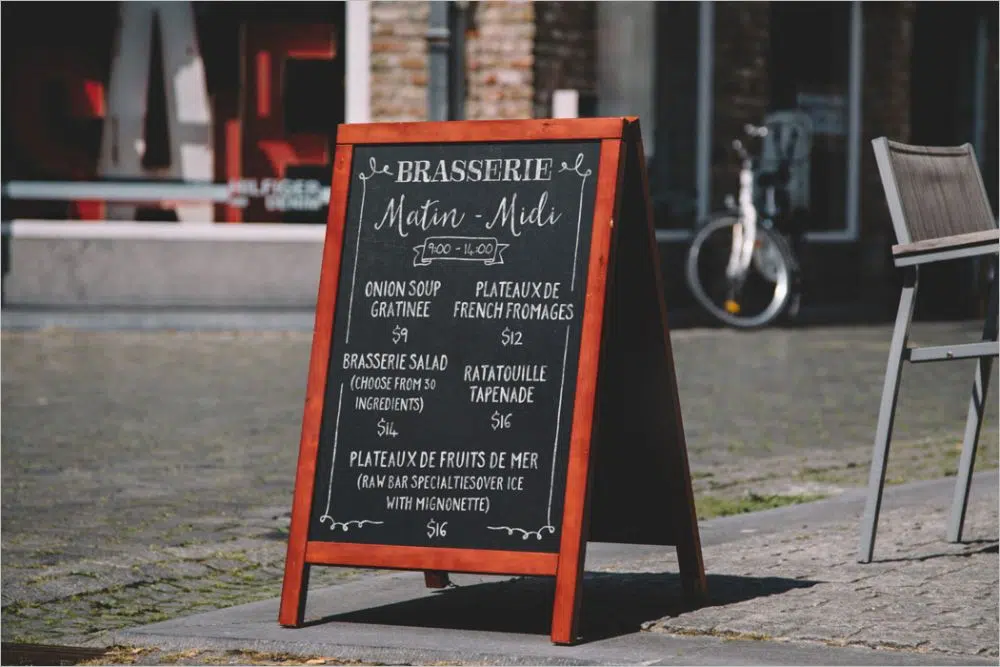 BRASSERIE
Matin - Midi
9:00 - 14:00
ONION SOUP
GRATINEE
$9
PLATEAUX DE
FRENCH FROMAGES
$12
BRASSERIE SALAD
(CHOOSE FROM 30
INGREDIENTS)
$14
RATATOUILLE
TAPENADE
$16
PLATEAUX DE FRUITS DE MER
(RAW BAR SPECIALTIESOVER ICE
WITH MIGNONETTE)
$16
HILFIGER
DENIM